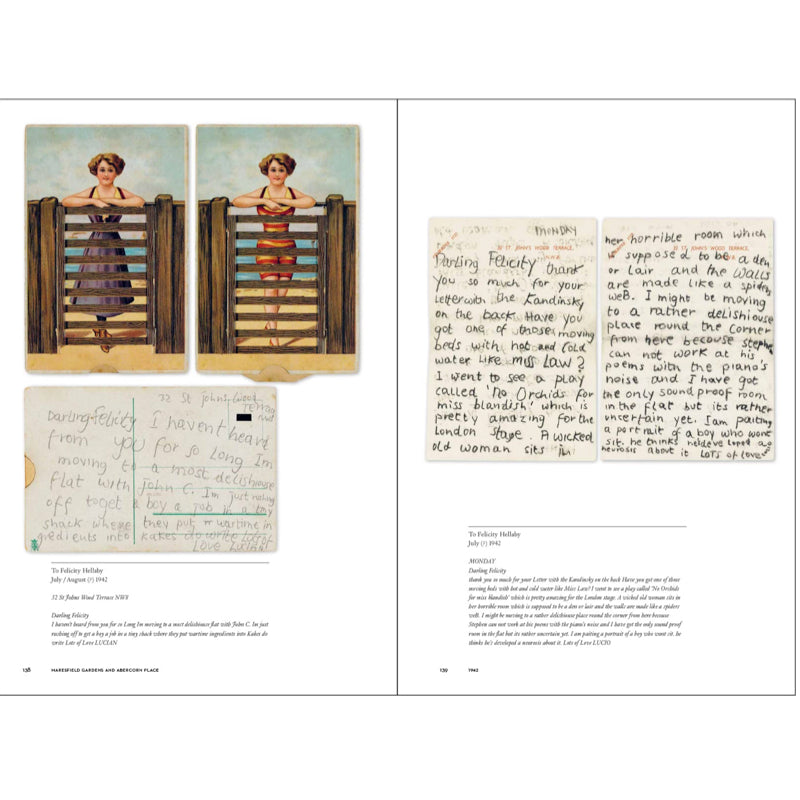 32 St Johns Wood
Terrace
NW8
Darling Felicity I havent heard
from you for so long Im
moving to a most delishiouse
flat with John C. Im just rushing
off to get a boy a job in a tiny
shack where they put wartime in
gredients into Kakes do write Lots of
Love Lucian
To Felicity Hellaby
July / August (?) 1942
32 St Johns Wood Terrace NW8
Darling Felicity
I haven't heard from you for so Long Im moving to a most delishiouse flat with John C. Im just
rushing off to get a boy a job in a tiny shack where they put wartime ingredients into Kakes do
write Lots of Love LUCIAN
138 MARESFIELD GARDENS AND ABERCORN PLACE
MONDAY
32 ST. JOHN'S WOOD TERRACE,
N.W.8
Darling Felicity thank
you so much for your
Letter with the Kandinsky
on the back Have you
got one of those moving
beds with hot and cold
water like miss LAW?
I went to see a play
called 'No Orchids for
miss blandish' which is
pretty amazing for the
London stage. A wicked
old woman sits in
her horrible room which
32 ST. JOHN'S WOOD TERRACE,
N.W.8
is supposed to be a den
or lair and the WALLS
are made like a spiders
weB. I might be moving
to a rather delishiouse
place round the corner
from here becouse Stephen
can not work at his
poems with the piano's
noise and I have got
the only sound proof room
in the flat but its rather
uncertain yet. I am paiting
a portrait of a boy who wont
sit. he thinks heldeveloped a
neurosis about it LOTS of LOVE
To Felicity Hellaby
July (?) 1942
MONDAY
Darling Felicity
thank you so much for your Letter with the Kandinsky on the back Have you got one of those
moving beds with hot and cold water like Miss Law? I went to see a play called 'No Orchids
for miss blandish' which is pretty amazing for the London stage. A wicked old woman sits in
her horrible room which is supposed to be a den or lair and the walls are made like a spiders
web. I might be moving to a rather delishiouse place round the corner from here because
Stephen can not work at his poems with the piano's noise and I have got the only sound proof
room in the flat but its rather uncertain yet. I am paiting a portrait of a boy who wont sit. he
thinks he's developed a neurosis about it. Lots of Love LUCIO
139 1942